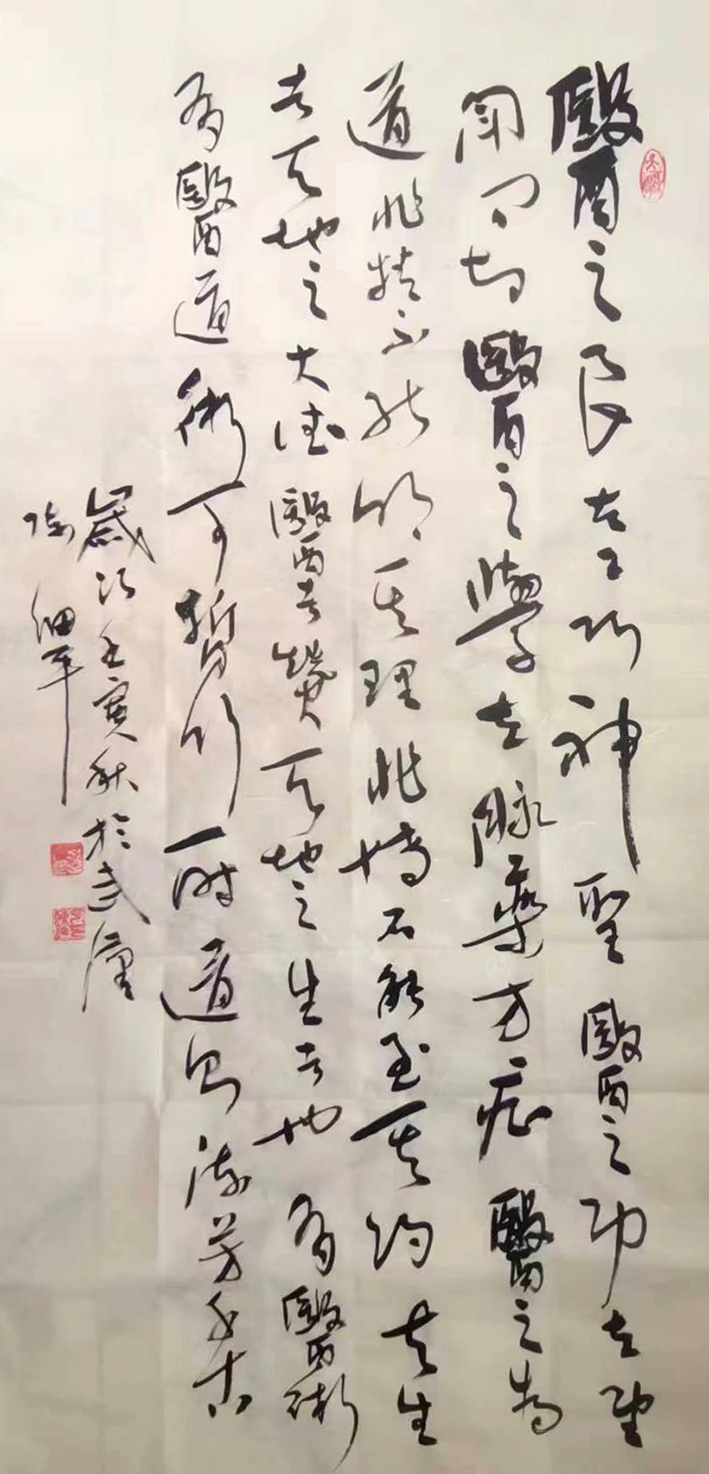 醫之良在巧神聖醫之功在望
聞问切醫之學在脉藥方症醫之為
道非精不能明其理非博不能至其约夫生
者天地之大德醫者赞天地之生者也有醫術
有醫道術可暂行一时道则流芳千古
歲次壬寅秋於武漢
陈细平